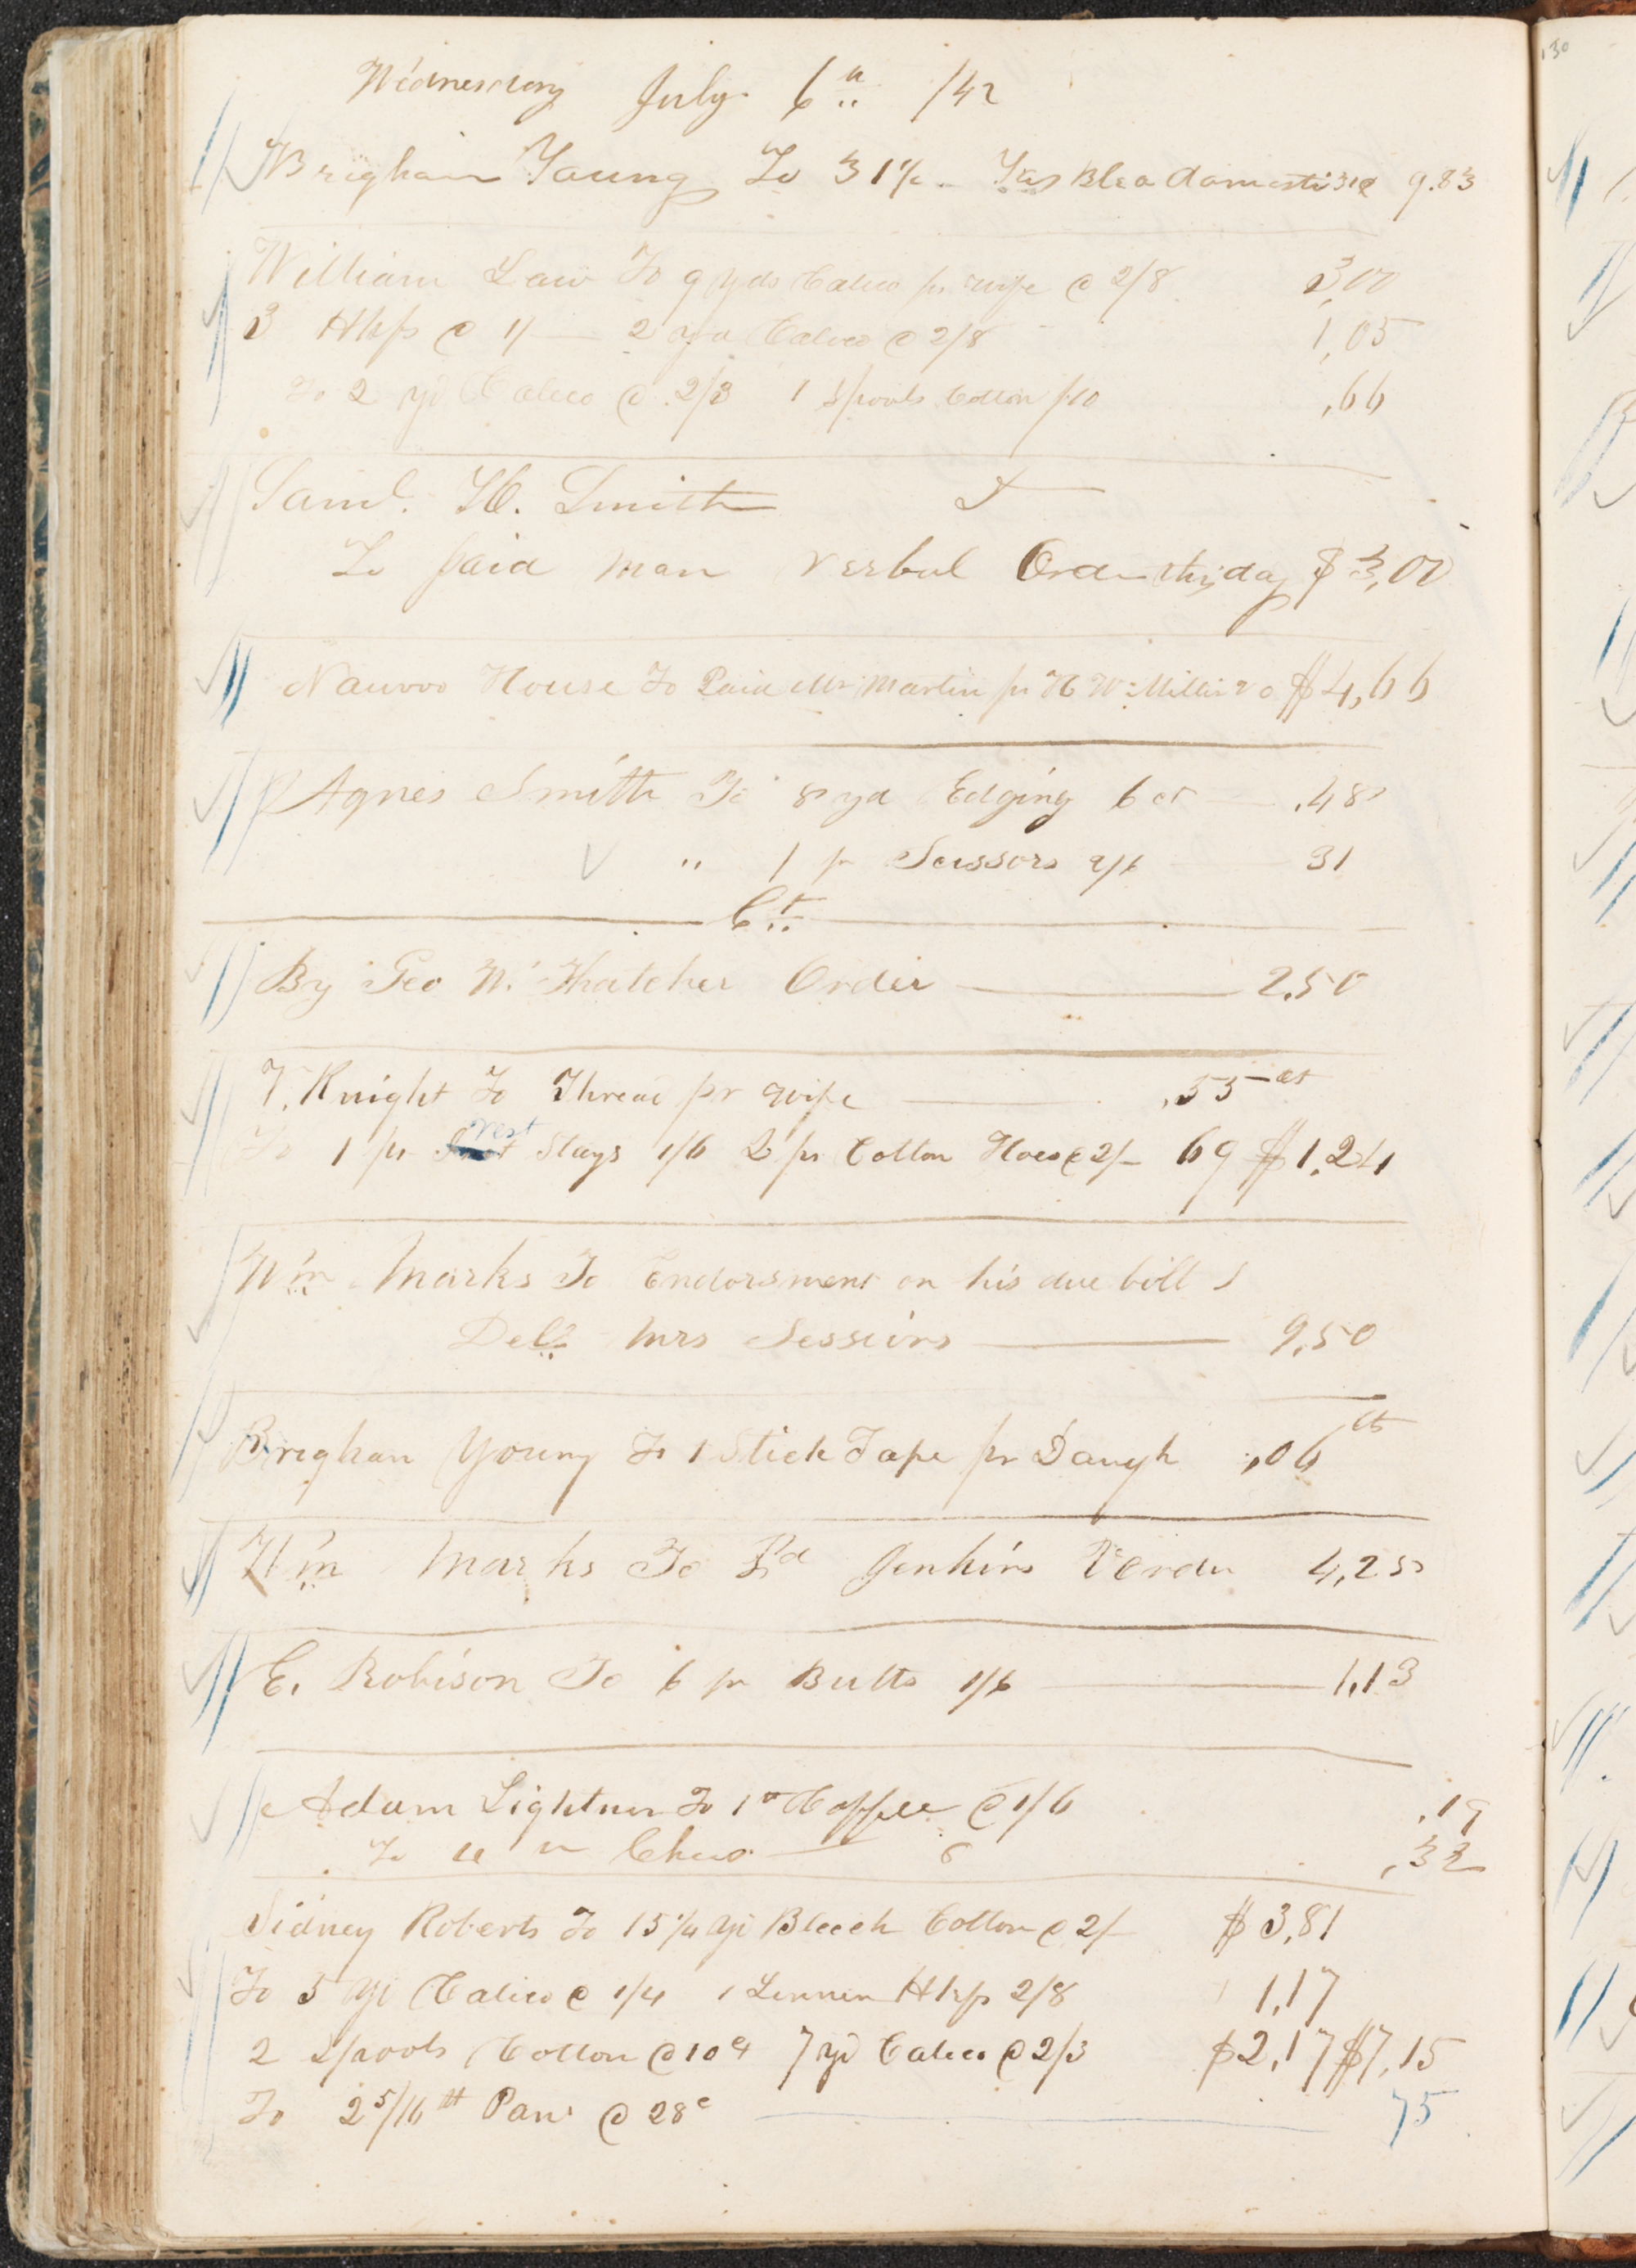 Wednesday July 6th /42
Brigham Young To 31½ Yds Blea domestic 31¢ 9.83
William Law To 9 yds Calico pr wife @ 2/8 3,00
3 Hkfs @ 1/ — 2 yd Calico @ 2/8 1,05
To 2 yd Calico @ 2/3 1 Spools Cotton /10 ,66
Saml. H. Smith
To paid man verbal Order this day $3,00
Nauvoo House To Paid Mr Martin pr H W. Miller vo $4,66
Agnes Smith To 8 yd Edging 6 ct — .48
" 1 pr Scissors 2/6 31
6th
By Geo W. Thatcher Order 2.50
V. Knight To Thread pr wife ,55 cts
To 1 pr vest Stays 1/6 2 pr Cotton Hose @ 2/- 69 $1.24
Wm Marks To Endorsment on his due bill
Deld Mrs Sessions 9,50
Brighan Young To 1 Stick Tape pr Daugh ,06 cts
Wm Marks To Pd Jenkins V Order 4,25
E. Robison To 6 pr Butts 1/6 1,13
Adam Lightner To 1 Coffee @ 1/6 .19
To 4 Chees 8 ,32
Sidney Roberts To 15 1/4 yd Bleech Cotton @ 2/- $3,81
To 5 yd Calico @ 1/4 1 Linnen Hkf 2/8 1,17
2 Spools Cotton @ 10 c 7 yd Calico @ 2/3 $2,17 $7,15
To 2 5/16 lb @ 28c 75
130